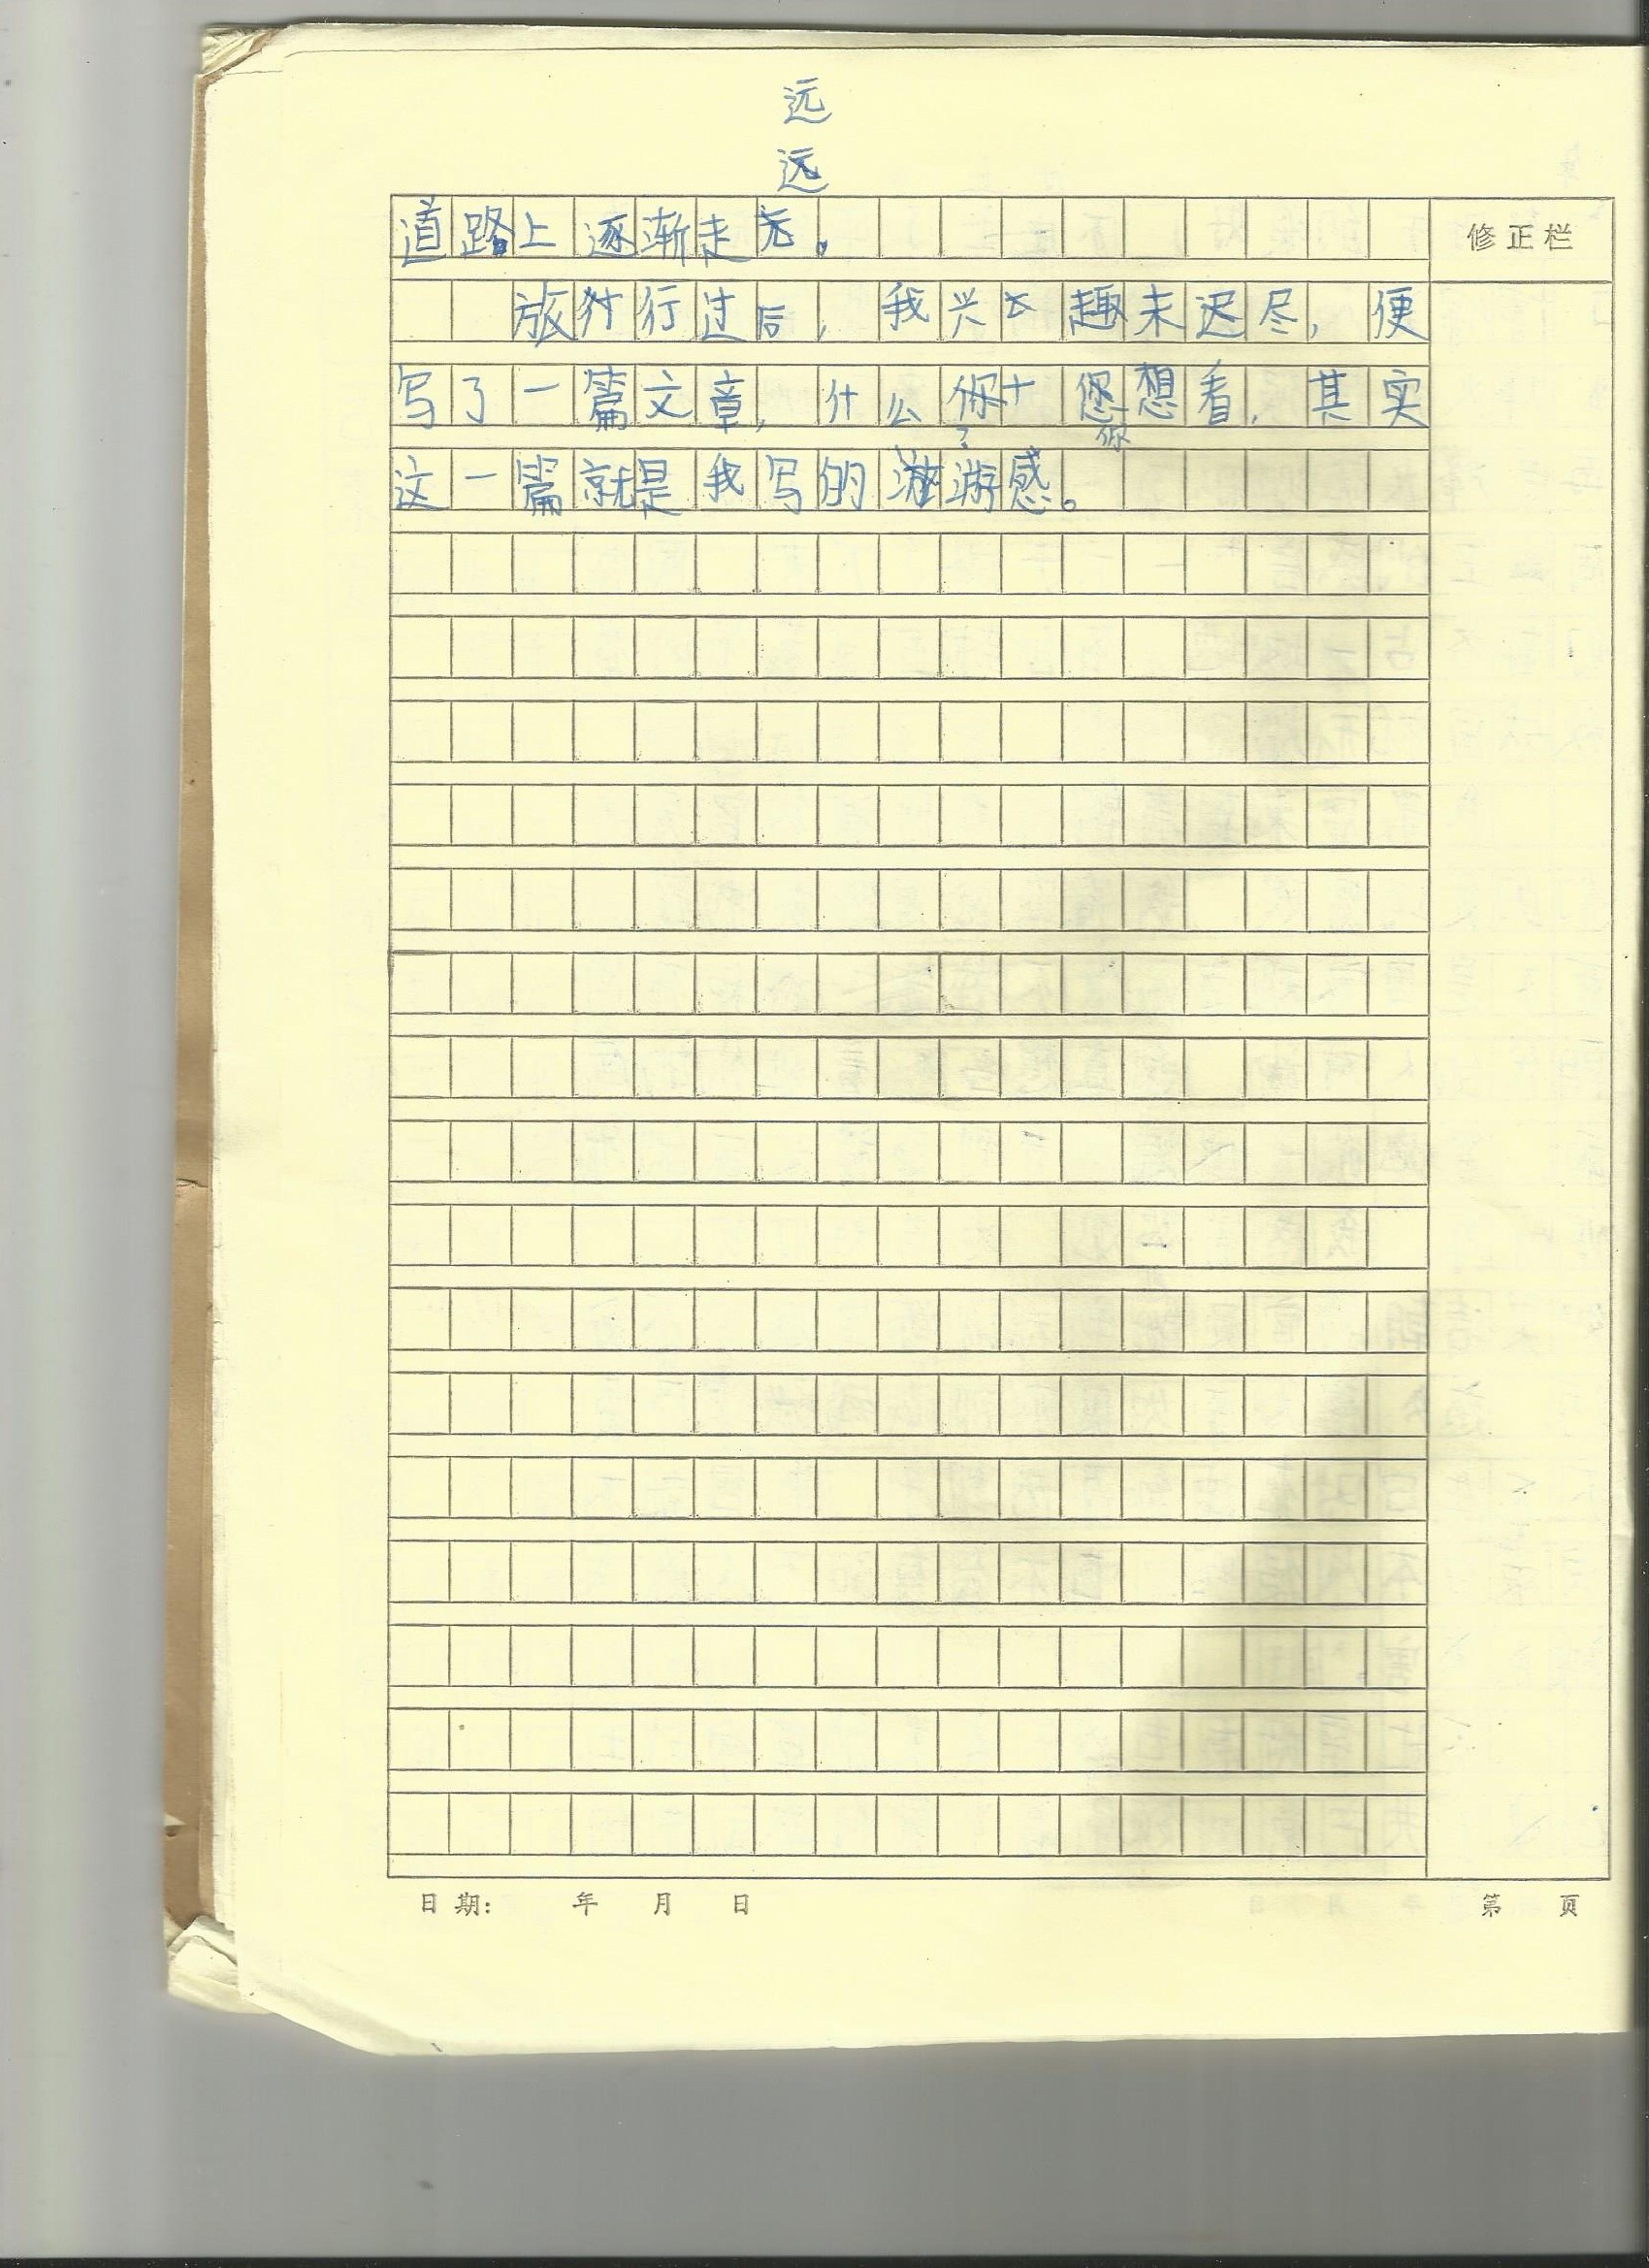 远
远
道路上逐渐走无。
修正栏
旅行行过后,我兴趣未迟尽,便
写了一篇文章,什么你十您想看,其实
?你
这一篇就是我写的游游感。
日期: 年 月 日
第 页